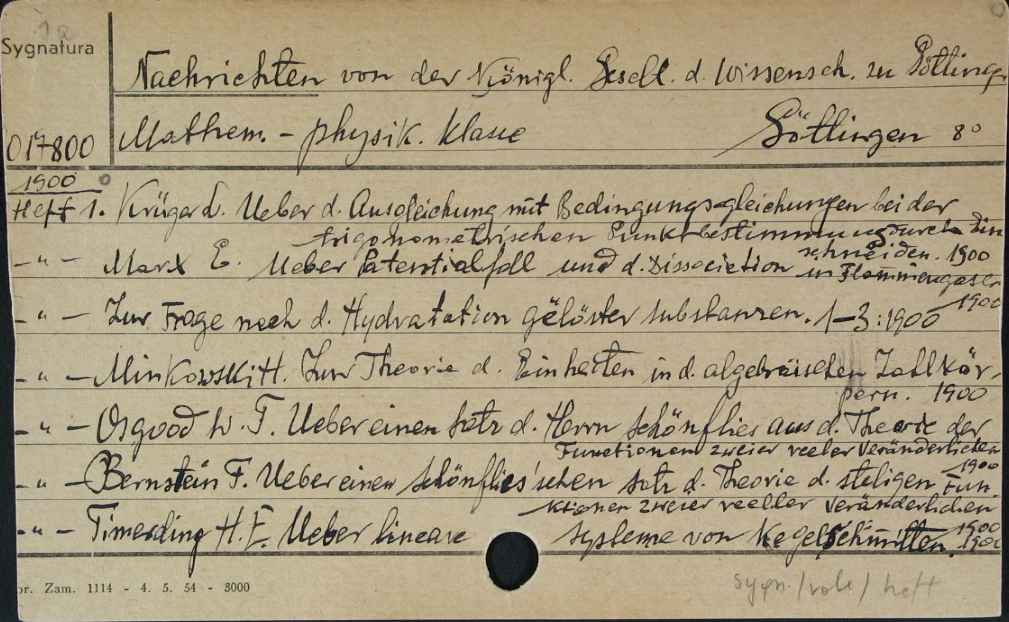 Sygnatura
Nachrichten von der Königl. Gesell. d. Wissensch. zu Göttingen
017800 Mathem. - physik. Klasse Göttingen 8°
1900
Heft 1. Krüger L. Ueber d. Ausgleichung mit Bedingungsgleichungen bei der
trigonometrischen Punktbestimmung durch Ein
schneiden. 1900
-"- Marx E. Ueber Potentialfall und d. Dissociation in Flammengasen
1900
-"- Zur Frage nach d. Hydratation gelöster Substanzen. 1-3: 1900
-"- Minkowski H. Zur Theorie d. Einheiten in d. algebräischen Zahlkör-
pern. 1900
-"- Osgood W. F. Ueber einen Satz d. Herrn Schönflies aus d. Theorie der
Functionen zweier reeler Veränderlichen
1900
-"- Bernstein F. Ueber einen Schönflies'schen Satz d. Theorie d. stetigen Fun-
ktionen zweier reeller Veränderlichen
1900
-"- Timerding H. E. Ueber lineare Systeme von Kegelschnitten. 1900
pr. Zam. 1114 - 4. 5. 54 - 3000
sygn./vol./heft